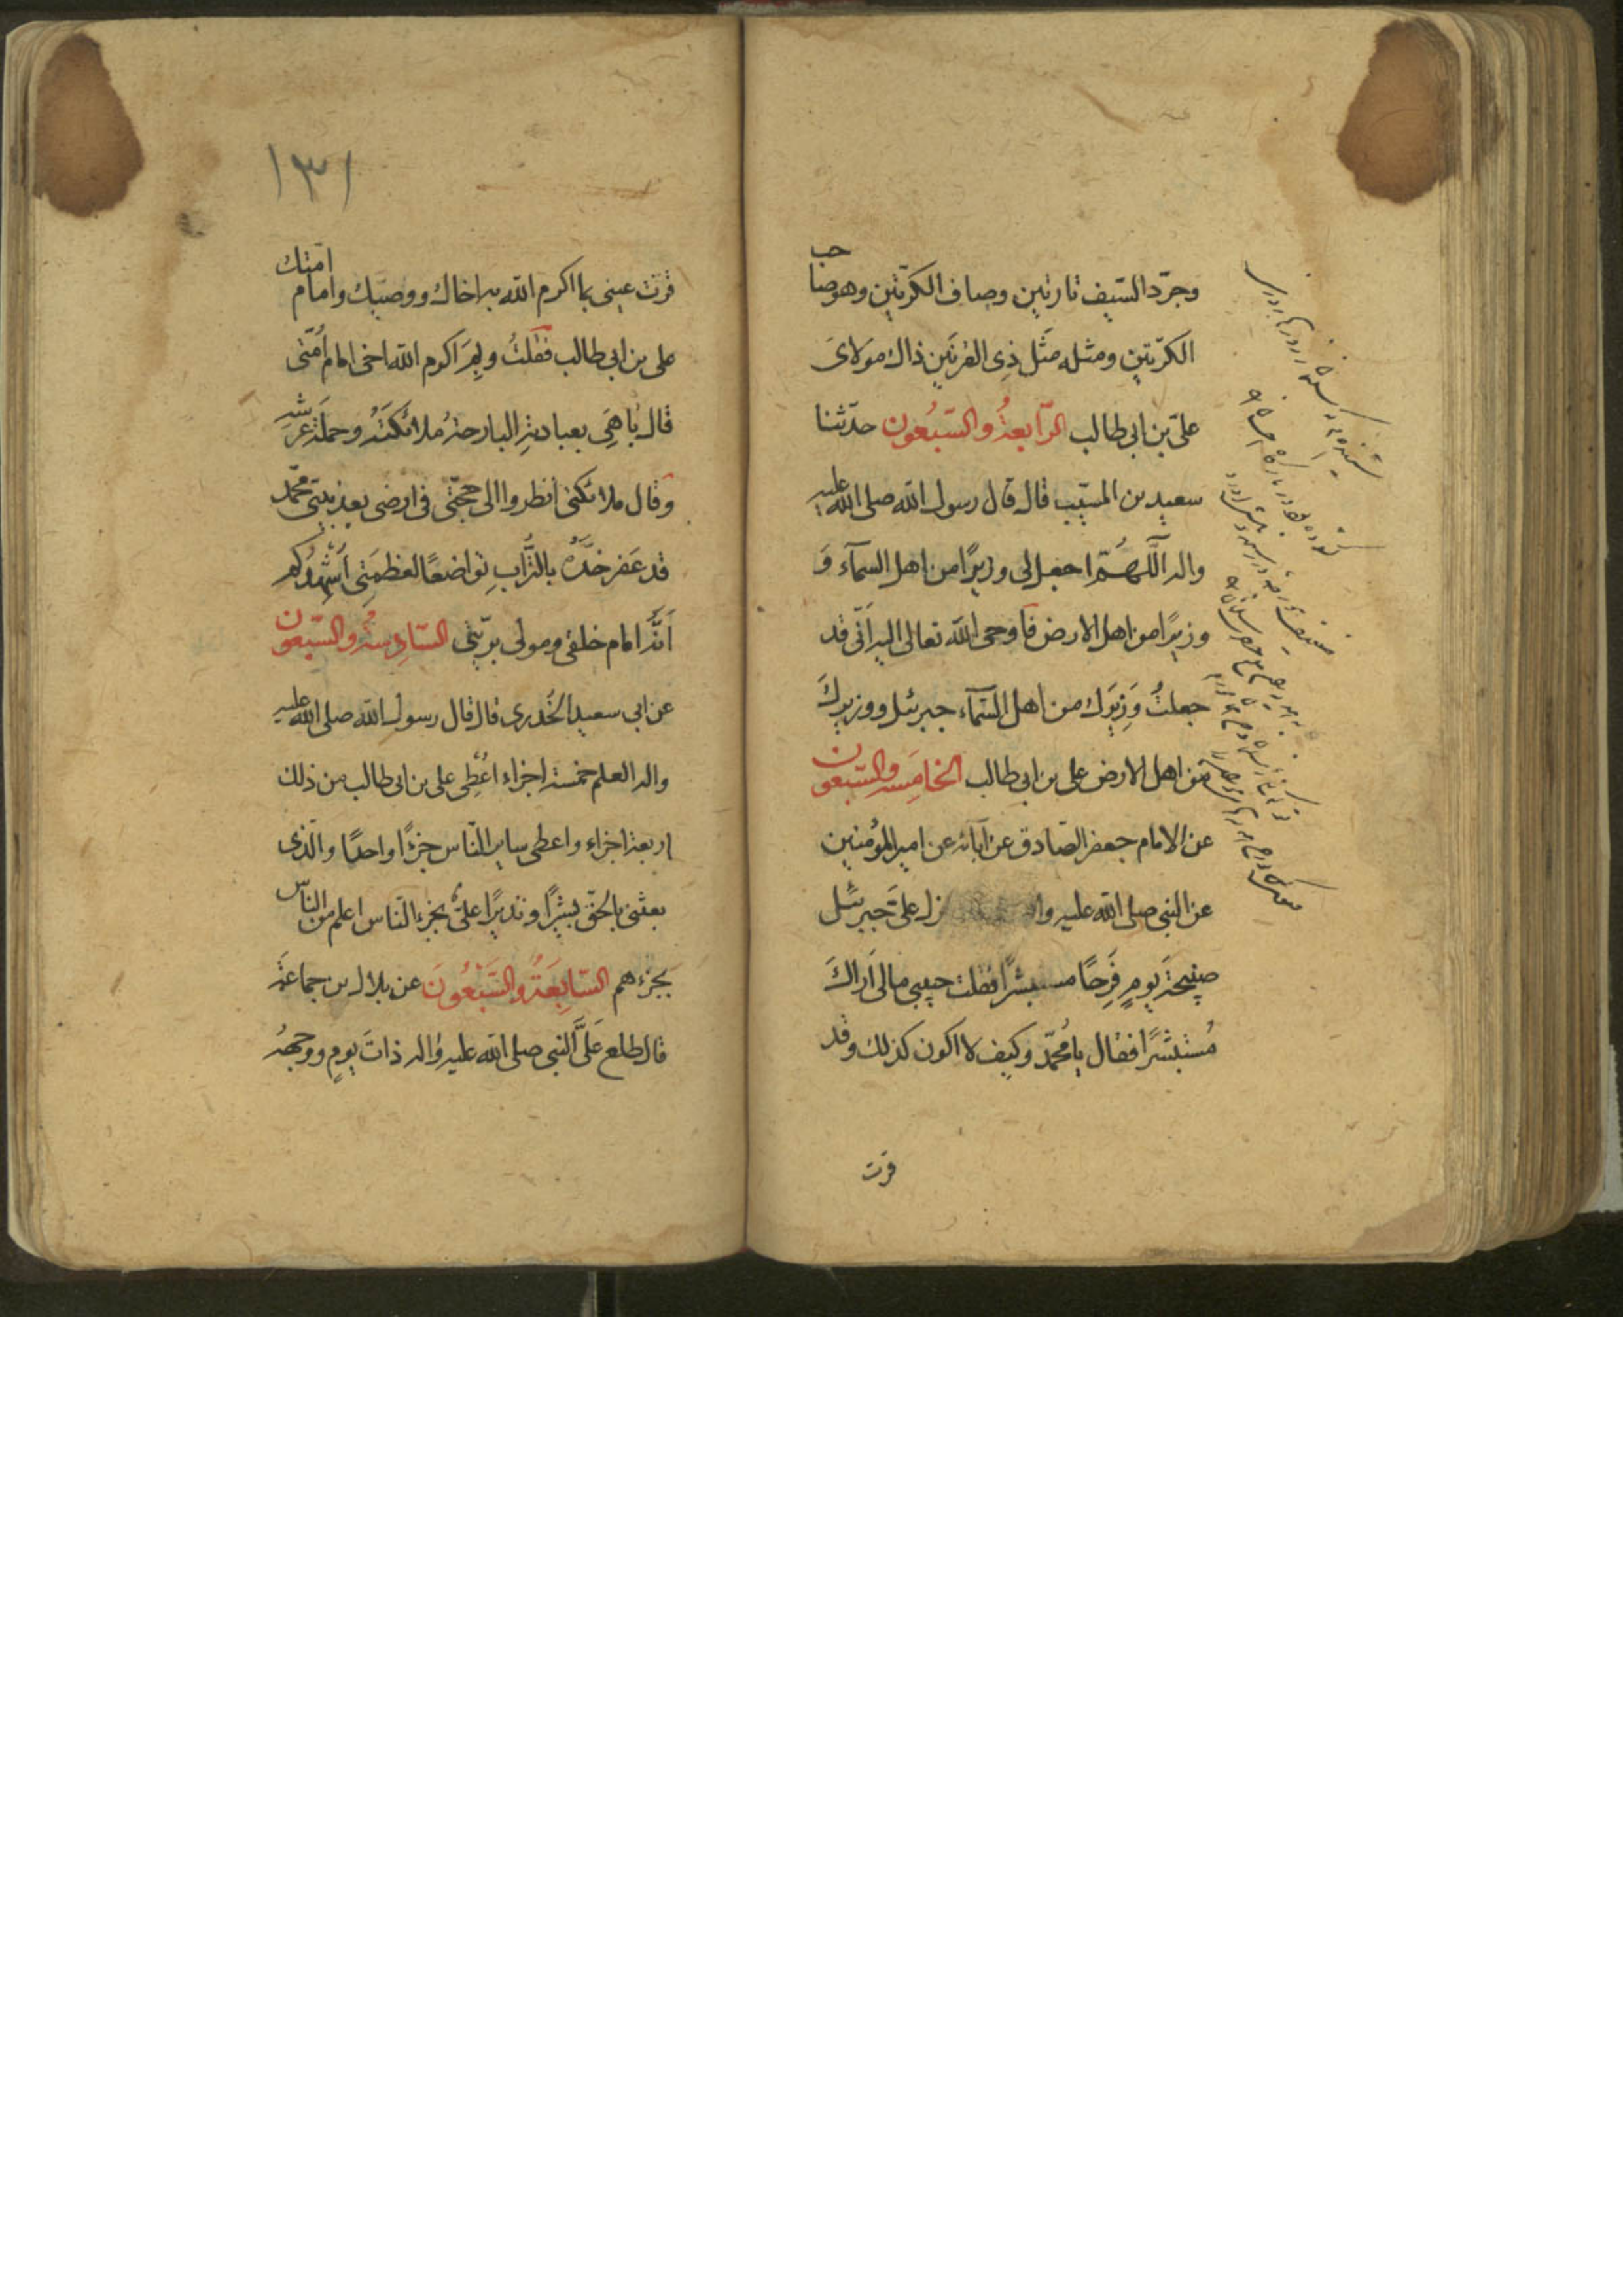 وجرّد السّيف تارتين وصاف الكرّتين وهو صاحب
الكرّتين ومثله مَثَل ذِى القرنَين ذاك مولاىَ
علىّ بن ابى طالب الرّابعةُ والسّبعُون حدّثنا
سعيد بن المسيّب قال قال رسول الله صلى الله عليه
واله اللّهُمّ اجعل لى وزيرًا من اهل السمآء وَ
وزيرًا من اهل الارض فاوحى الله تعالى اليه انّى قد
جعلتُ وَزِيَرك من اهل السّمآء جبرئيل ووزيرك
من اهل الارض على بن ابى طالب الخامسه والسّبعون
عن الامام جعفر الصّادق عن آبائه عن امير المؤمنين
عن النبى صلى الله عليه وا زل علىَّ جبرئيل
صبيحة يومٍ فَرِحًا مستبشرًا فقلت حبيبى مالى اَراكَ
مُستبشرًا فقال يا مُحمّد وكيف لا اكون كذلك وقد
قرت
١٣١
قرّت عينى بما اكرم الله به اخاك ووصيّك وامام امّتك
على بن ابى طالب فقلتُ وبِمَ اكرم الله اخى امام اُمّتى
قال بَاهَى بعبادتهِ البارحةُ ملائكتَهُ وحملة عرشه
وقال ملائكتى انظروا الى حجّتى فى ارضى بعد نبيّى محمّد
قد عَفر خَدَّهُ بالتُّرَابِ تواضعًا لعظمَتى اُشْهِدُكم
اَنَّه امام خلقى ومولى بريّتى السّادسةُ والسّبعون
عن ابى سعيد الخُدرى قال قال رسول الله صلى الله عليه
واله العلم خمسة اجزاء اُعْطِى على بن ابى طالب من ذلك
اربعة اجزاء واعطى ساير النّاس جزءًا واحدًا والّذى
بعثنى بالحقّ بشيرًا ونذيرًا علىّ بجزء النّاس اعلم من النّاس
بجزءهم السّابِعَةُ والسَّبْعُونَ عن بلال بن جماعَة
قال طلع عَلَىَّ النبى صلى الله عليه واله ذاتَ يومٍ ووجههُ